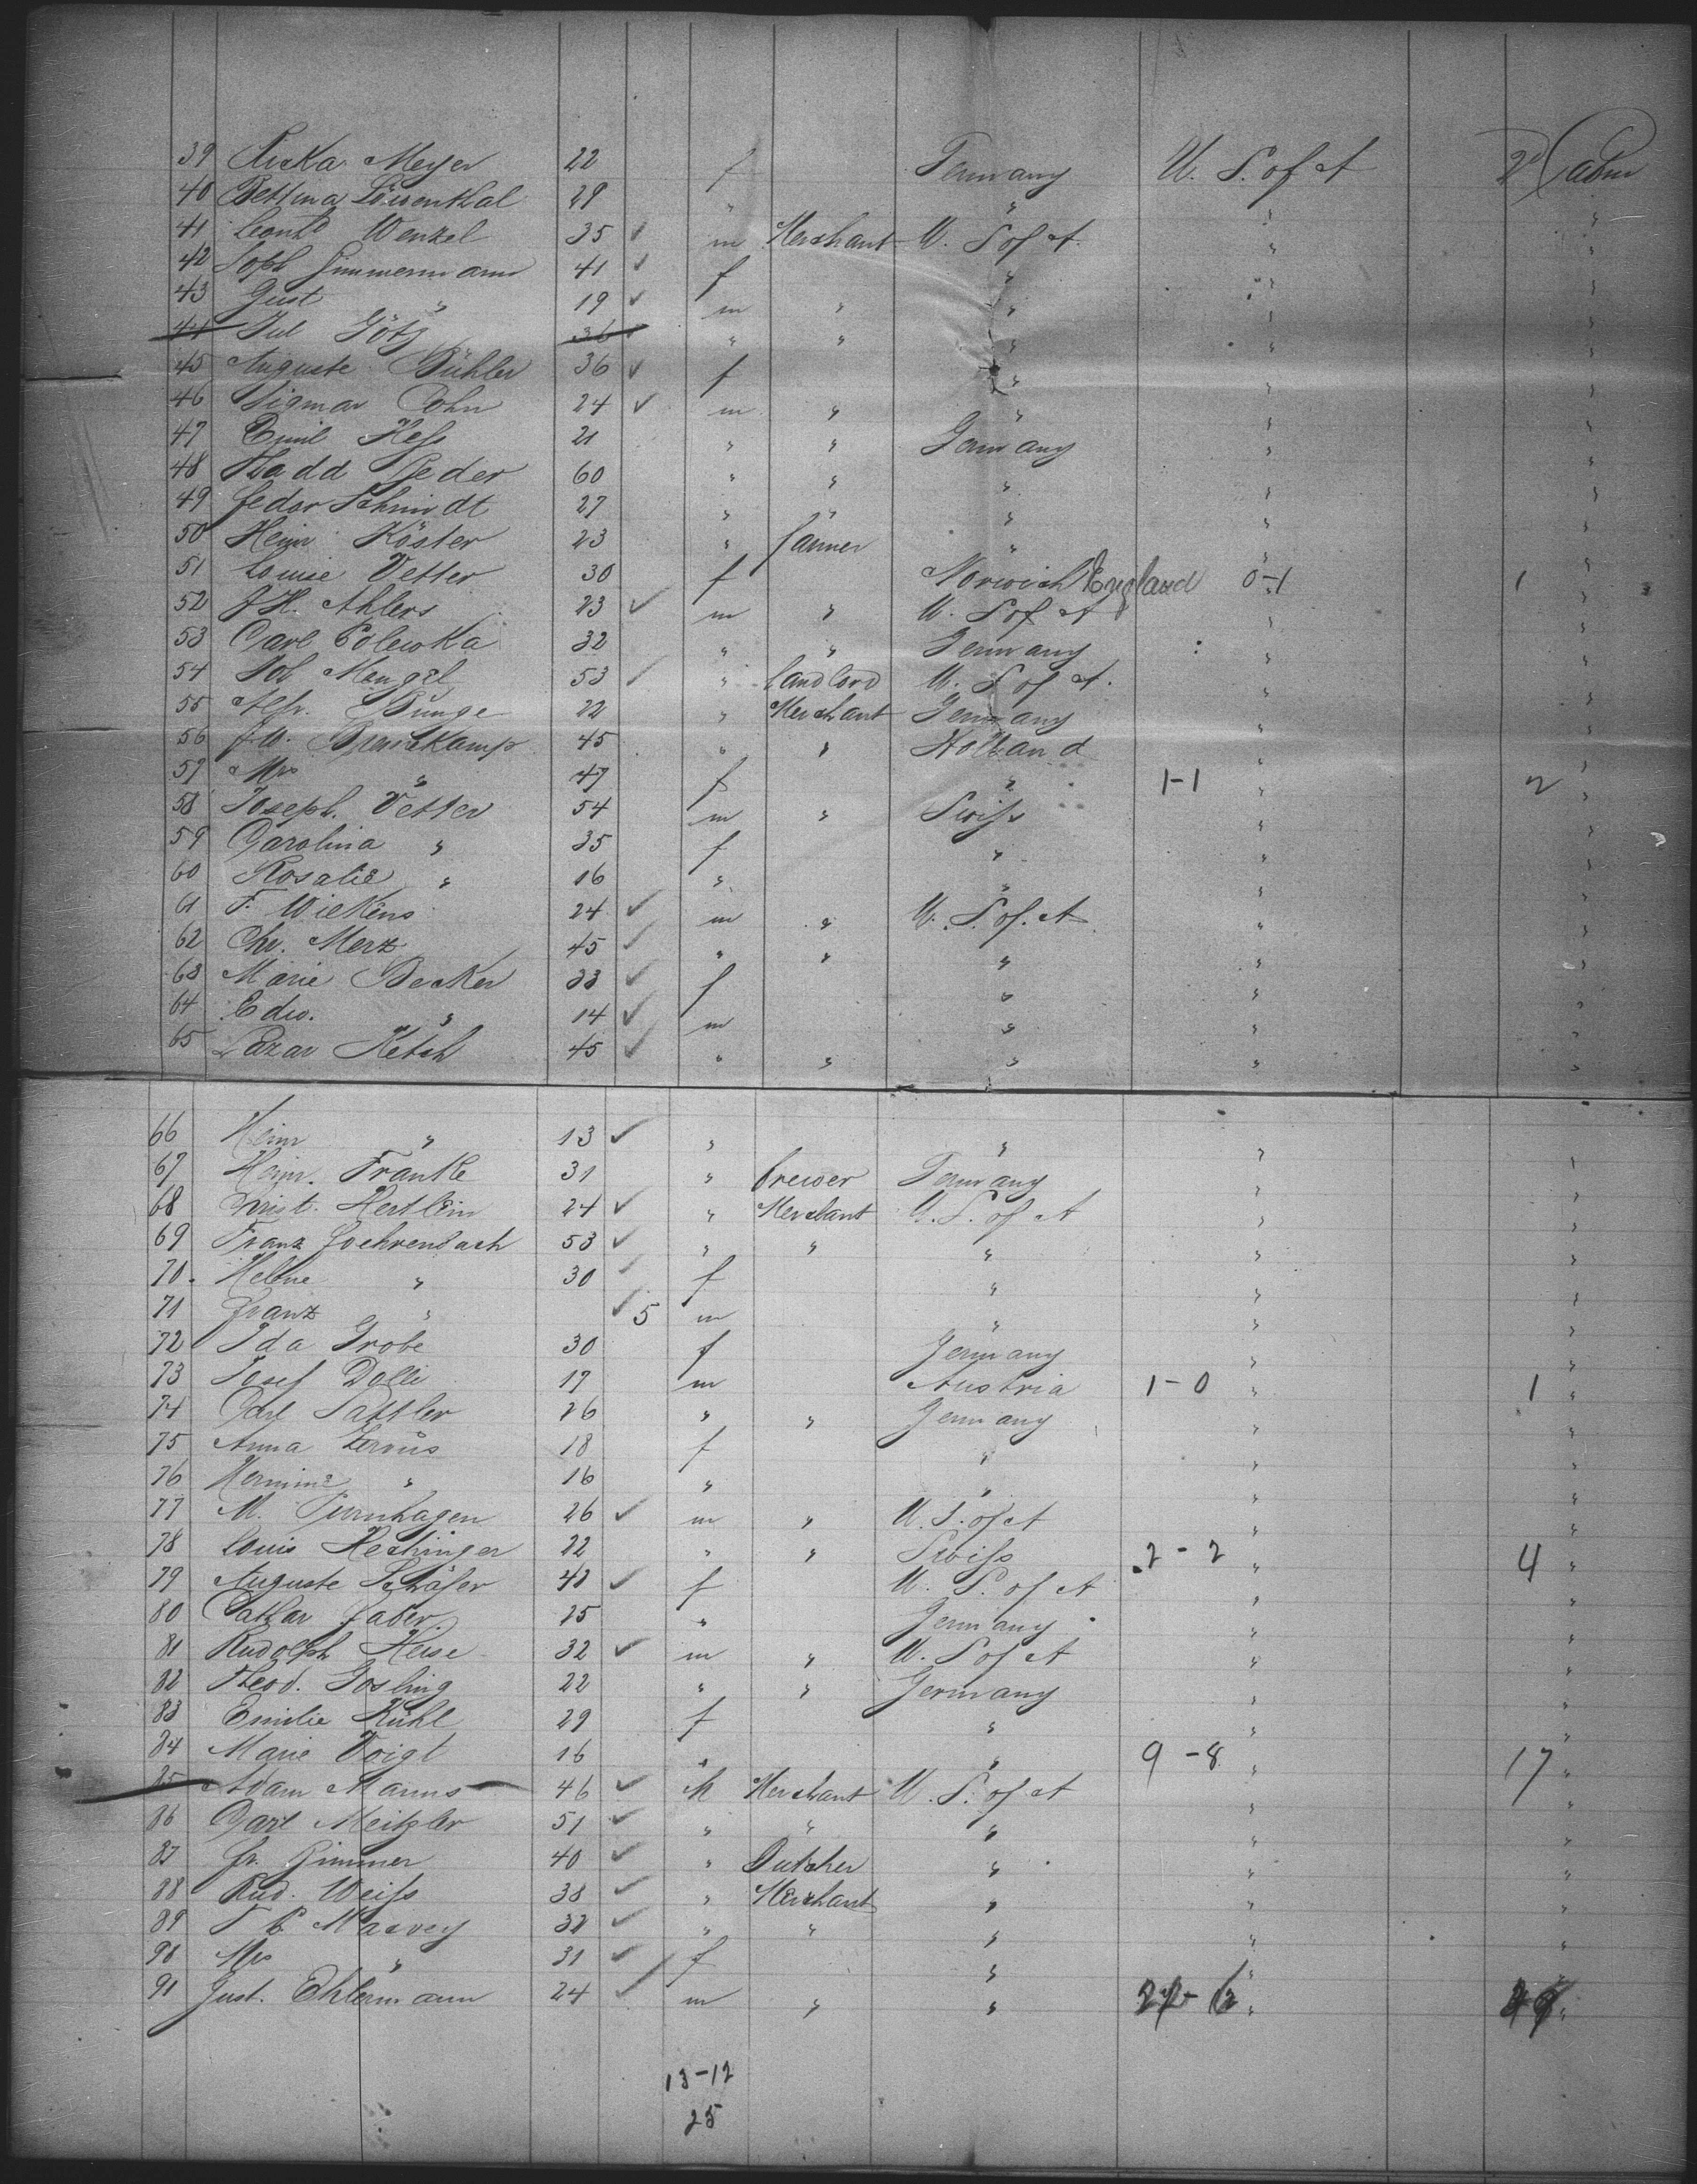 39 Ricka Meyer 22 f Germany U. S. of A 2d Cabin
40 Bettina Löwenthal 29 " " " "
41 Wenzel 35 ✓ m Merchant U. S of A. " "
42 Soph Zimmermann 41 ✓ f " " "
43 Gust " 19 ✓ m " " " "
44 Jul Götz 36 ✓ " " " " "
45 Auguste Bühler 36 ✓ f " " "
46 Sigmar Cohn 24 ✓ m " " " "
47 Emil Heſs 21 " " Germany " "
48 60 " " " " "
49 Fedor Schmidt 27 " " " " "
50 Heinr Köster 23 " farmer " " "
51 Louise Vetter 30 f Norwich England 0-1 " 1 "
52 J H. Ahlers 23 ✓ m " U. S of A " "
53 Carl Polewka 32 " " Germany " "
54 Mengel 53 ✓ " Landlord U. S of A. " "
55 Alfr. Bunge 22 " Merchant Germany " "
56 45 " " Holland " "
57 Mrs " 47 f " 1-1 " 2 "
58 Joseph. Vetter 54 m " Swiſs " "
59 Carolina " 35 f " " "
60 Rosalie " 16 " " " "
61 F. Wilkens 24 ✓ m " U. S. of. A " "
62 Chr. Merz 45 ✓ " " " " "
63 Marie Becker 33 ✓ f " " "
64 Edw. " 14 ✓ m " " "
65 Lazar Ketsch 45 ✓ " " " " "
66 Heinr " 13 ✓ " " " "
67 Heinr. Franke 31 " brewer Germany " "
68 Christ. Hertlein 24 ✓ " Merchant U. S. of A " "
69 Franz Foehrenbach 53 ✓ " " " " "
70. Helene " 30 ✓ f " " "
71 Franz " ✓ 5 m " " "
72 Ida Grobe 30 f Germany " "
73 Josef Dolli 17 m Austria 1-0 " 1 "
74 Carl Sattler 26 " " Germany " "
75 Anna Zervus 18 f " " "
76 Hermine " 16 " " " "
77 M. Turnhagen 26 ✓ m " U. S. of A " "
78 Louis Hechinger 22 " " Swiſs 2-2 " 4 "
79 Auguste Schäfer 43 ✓ f U. S. of A " "
80 Cathar Faber 25 " Germany " "
81 Rudolph Heise 32 ✓ m " U. S of A " "
82 Theod. Gosling 22 " " Germany " "
83 Emilie Kühl 29 f " " "
84 Marie Voigt 16 " " 9-8 " 17 "
85 Adam Manns 46 ✓ M Merchant U. S. of A " "
86 Carl Meitzler 51 ✓ " " " " "
87 Fr. Zimmer 40 ✓ " Butcher " " "
88 Rud. Weiſs 38 ✓ " Merchant " " "
89 Harvey 32 ✓ " " " " "
90 Mrs " 31 ✓ f " " "
91 Gust. Ehlermann 24 ✓ m " " " "
13-12
25